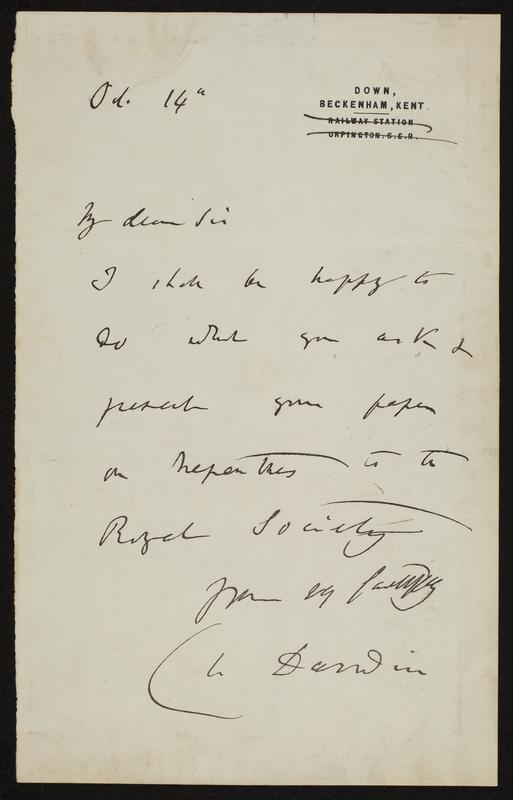 Oct. 14th
DOWN,
BECKENHAM, KENT.
RAILWAY STATION
ORPINGTON. S.E.R.
My dear Sir
I shall be happy to
do what you ask &
present your paper
on Nepenthes to the
Royal Society
Yours very faithfully
Ch Darwin